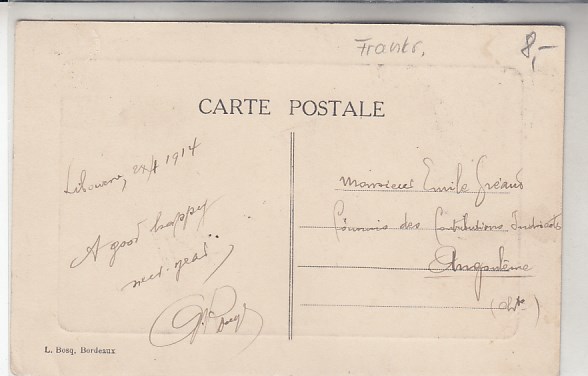 Franks.
8,-
CARTE POSTALE
Libourne, 1914
A good happy
new-year..
Monsieur Emile Gréaud
Commis des Contributions Indirectes
Angoulême
(Chte)
L. Bosq, Bordeaux